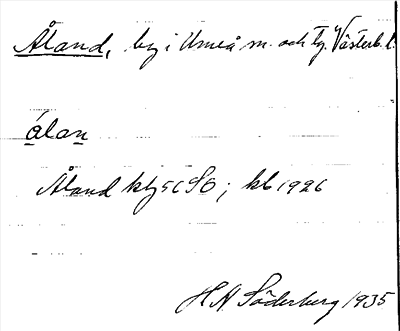 Åland, by i Umeå sn. och tg. Västerb. l.
ålan
Åland kbf 56 SO; kb 1926
H N Söderberg 1935